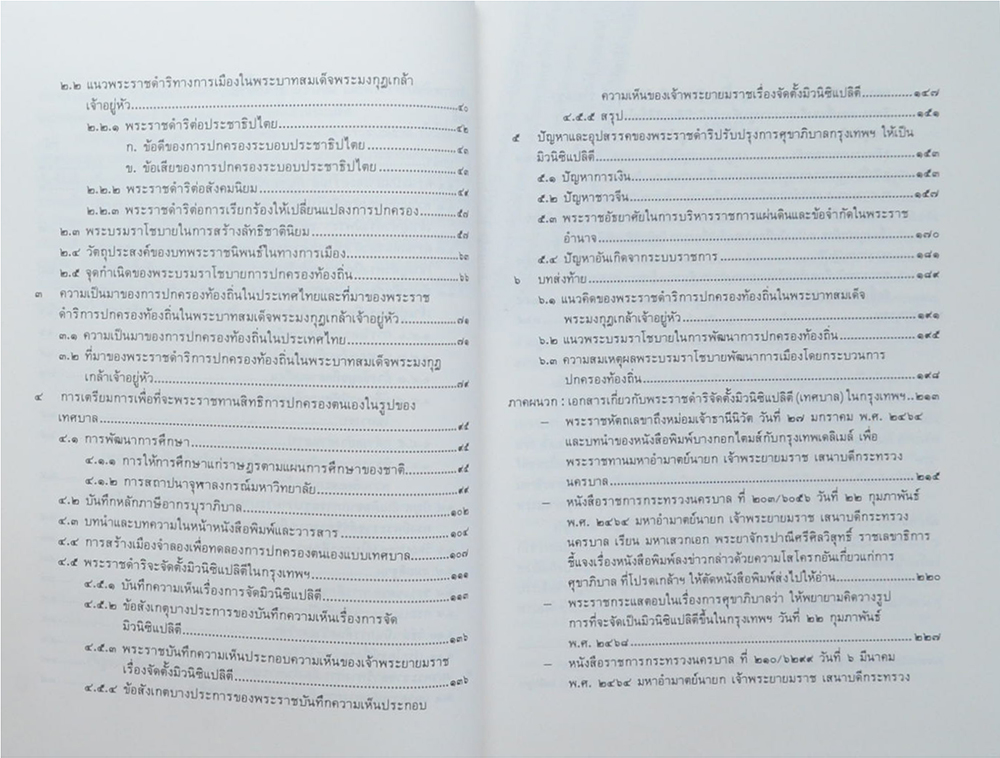 ๒.๒ แนวพระราชดำริทางการเมืองในพระบาทสมเด็จพระมงกุฎเกล้า
เจ้าอยู่หัว..........๔๐
๒.๒.๑ พระราชดำริต่อประชาธิปไตย..........๔๒
ก. ข้อดีของการปกครองระบอบประชาธิปไตย..........๔๓
ข. ข้อเสียของการปกครองระบอบประชาธิปไตย..........๔๓
๒.๒.๒ พระราชดำริต่อสังคมนิยม..........๔๙
๒.๒.๓ พระราชดำริต่อการเรียกร้องให้เปลี่ยนแปลงการปกครอง..........๕๗
๒.๓ พระบรมราโชบายในการสร้างลัทธิชาตินิยม..........๕๗
๒.๔ วัตถุประสงค์ของบทพระราชนิพนธ์ในทางการเมือง..........๖๓
๒.๕ จุดกำเนิดของพระบรมราโชบายการปกครองท้องถิ่น..........๖๖
๓ ความเป็นมาของการปกครองท้องถิ่นในประเทศไทยและที่มาของพระราช
ดำริการปกครองท้องถิ่นในพระบาทสมเด็จพระมงกุฎเกล้าเจ้าอยู่หัว..........๗๑
๓.๑ ความเป็นมาของการปกครองท้องถิ่นในประเทศไทย..........๗๑
๓.๒ ที่มาของพระราชดำริการปกครองท้องถิ่นในพระบาทสมเด็จพระมงกุฎ
เกล้าเจ้าอยู่หัว..........๗๙
๔ การเตรียมการเพื่อที่จะพระราชทานสิทธิการปกครองตนเองในรูปของ
เทศบาล..........๙๕
๔.๑ การพัฒนาการศึกษา..........๙๕
๔.๑.๑ การให้การศึกษาแก่ราษฎรตามแผนการศึกษาของชาติ..........๙๕
๔.๑.๒ การสถาปนาจุฬาลงกรณ์มหาวิทยาลัย..........๙๙
๔.๒ บันทึกหลักภาษีอากรบุราภิบาล..........๑๐๒
๔.๓ บทนำและบทความในหน้าหนังสือพิมพ์และวารสาร..........๑๐๔
๔.๔ การสร้างเมืองจำลองเพื่อทดลองการปกครองตนเองแบบเทศบาล..........๑๐๗
๔.๕ พระราชดำริจะจัดตั้งมิวนิซิแปลิตีในกรุงเทพฯ..........๑๑๑
๔.๕.๑ บันทึกความเห็นเรื่องการจัดมิวนิซิแปลิตี..........๑๑๓
๔.๕.๒ ข้อสังเกตุบางประการของบันทึกความเห็นเรื่องการจัด
มิวนิซิแปลิตี..........๑๓๖
๔.๕.๓ พระราชบันทึกความเห็นประกอบความเห็นของเจ้าพระยายมราช
เรื่องจัดตั้งมิวนิซิแปลิตี..........๑๓๖
๔.๕.๔ ข้อสังเกตบางประการของพระราชบันทึกความเห็นประกอบ
ความเห็นของเจ้าพระยายมราชเรื่องจัดตั้งมิวนิซิแปลิตี..........๑๔๗
๔.๕.๕ สรุป..........๑๕๑
๕ ปัญหาและอุปสรรคของพระราชดำริปรับปรุงการศุขาภิบาลกรุงเทพฯ ให้เป็น
มิวนิซิแปลิตี..........๑๕๓
๕.๑ ปัญหาการเงิน..........๑๕๓
๕.๒ ปัญหาชาวจีน..........๑๕๗
๕.๓ พระราชอัธยาศัยในการบริหารราชการแผ่นดินและข้อจำกัดในพระราช
อำนาจ..........๑๗๐
๕.๔ ปัญหาอันเกิดจากระบบราชการ..........๑๘๑
๖ บทส่งท้าย..........๑๘๙
๖.๑ แนวคิดของพระราชดำริการปกครองท้องถิ่นในพระบาทสมเด็จ
พระมงกุฎเกล้าเจ้าอยู่หัว..........๑๙๑
๖.๒ แนวพระบรมราโชบายในการพัฒนาการปกครองท้องถิ่น..........๑๙๕
๖.๓ ความสมเหตุผลพระบรมราโชบายพัฒนาการเมืองโดยกระบวนการ
ปกครองท้องถิ่น..........๑๙๘
ภาคผนวก : เอกสารเกี่ยวกับพระราชดำริจัดตั้งมิวนิซิแปลิตี (เทศบาล) ในกรุงเทพฯ..๒๑๓
– พระราชหัตถเลขาถึงหม่อมเจ้าธานีนิวัต วันที่ ๒๗ มกราคม พ.ศ. ๒๔๖๔
และบทนำของหนังสือพิมพ์บางกอกไตมส์กับกรุงเทพเดลิเมล์ เพื่อ
พระราชทานมหาอำมาตย์นายก เจ้าพระยายมราช เสนาบดีกระทรวง
นครบาล..........๒๑๕
– หนังสือราชการกระทรวงนครบาล ที่ ๒๐๓/๖๐๕๖ วันที่ ๒๒ กุมภาพันธ์
พ.ศ. ๒๔๖๔ มหาอำมาตย์นายก เจ้าพระยายมราช เสนาบดีกระทรวง
นครบาล เรียน มหาเสวกเอก พระยาจักรปาณีศรีศิลวิสุทธิ์ ราชเลขาธิการ
ชี้แจงเรื่องหนังสือพิมพ์ลงข่าวกล่าวด้วยความโสโครกอันเกี่ยวแก่การ
ศุขาภิบาล ที่โปรดเกล้าฯ ให้ตัดหนังสือพิมพ์ส่งไปให้อ่าน..........๒๒๐
– พระราชกระแสตอบในเรื่องการศุขาภิบาลว่า ให้พยายามคิดวางรูป
การที่จะจัดเป็นมิวนิซิแปลิตีขึ้นในกรุงเทพฯ วันที่ ๒๒ กุมภาพันธ์
พ.ศ. ๒๔๖๘..........๒๒๗
– หนังสือราชการกระทรวงนครบาล ที่ ๒๑๐/๖๒๙๙ วันที่ ๖ มีนาคม
พ.ศ. ๒๔๖๔ มหาอำมาตย์นายก เจ้าพระยายมราช เสนาบดีกระทรวง